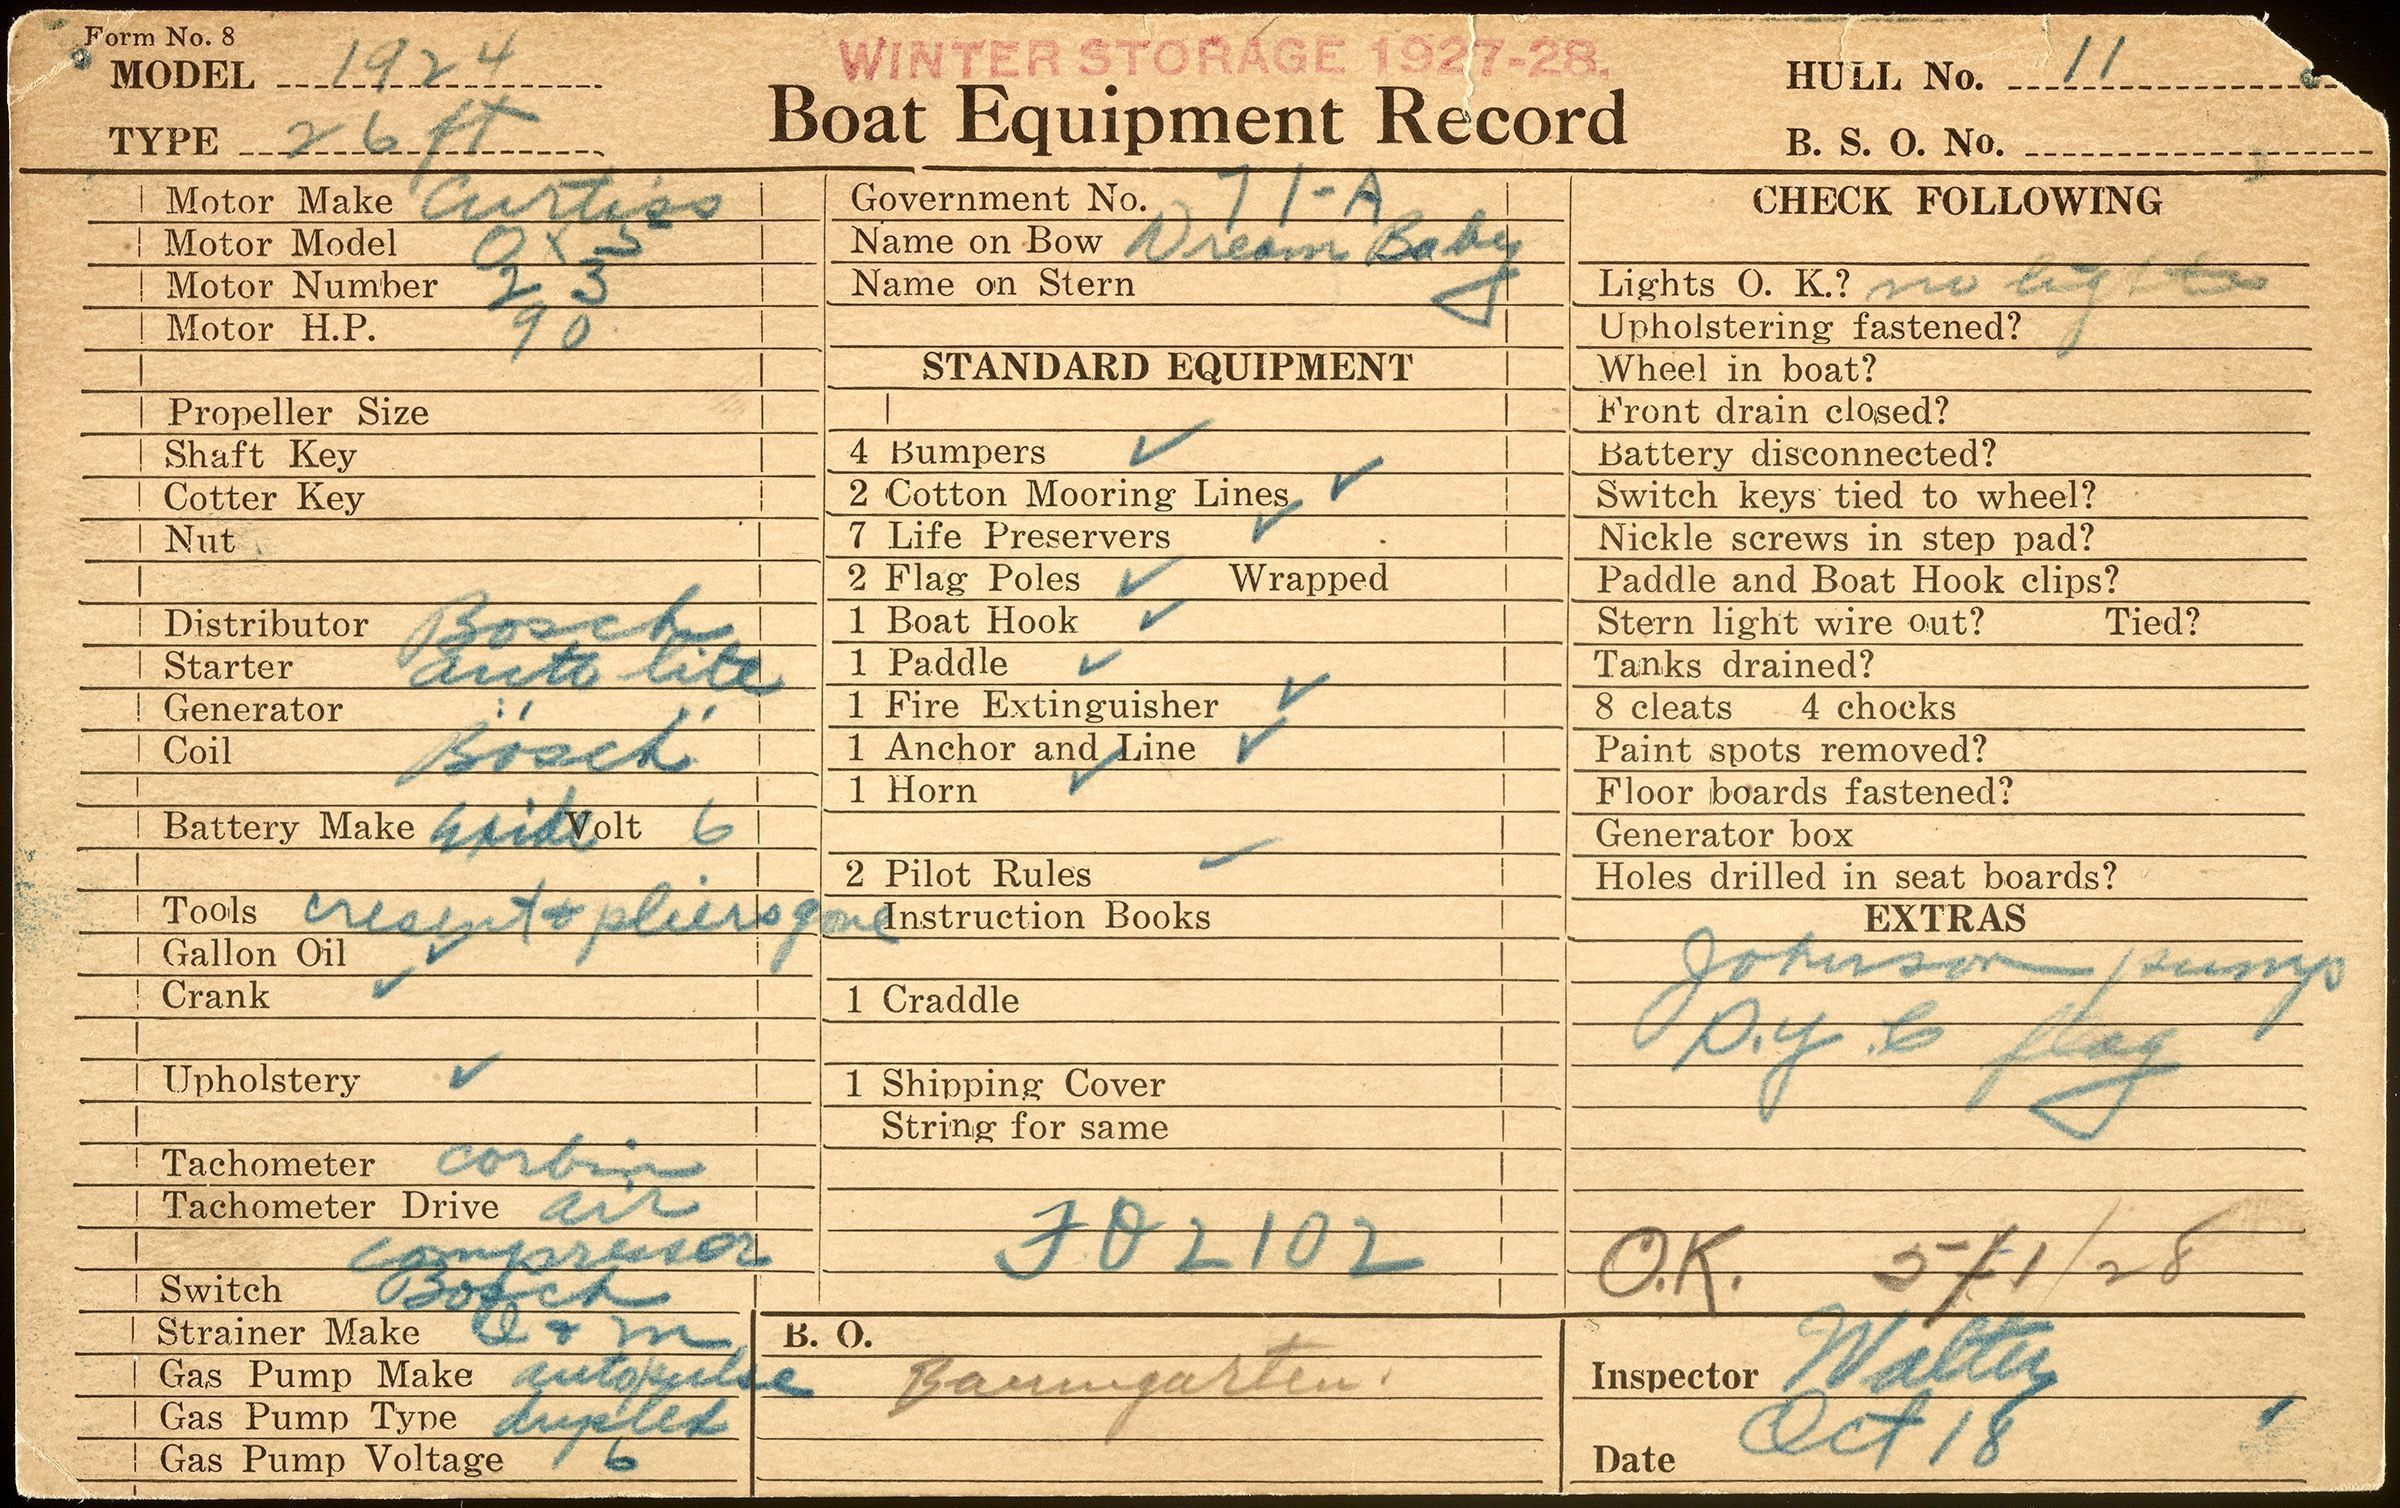 Form No. 8
WINTER STORAGE 1927-28.
MODEL 1924
Boat Equipment Record
HULL No. 11
TYPE 26 ft
B. S. O. No.
Motor Make Curtiss
Motor Model OX5
Motor Number 23
Motor H.P. 90
Propeller Size
Shaft Key
Cotter Key
Nut
Distributor Bosch
Starter auto lite
Generator " "
Coil Bosch
Battery Make Exide Volt 6
Tools cresent + pliers gone
Gallon Oil ✓
Crank ✓
Upholstery ✓
Tachometer corbin
Tachometer Drive air
compressor
Switch Bosch
Strainer Make & m
Gas Pump Make autopulse
Gas Pump Type duplex
Gas Pump Voltage 6
Government No. 71-A
Name on Bow Dream Baby
Name on Stern
STANDARD EQUIPMENT
4 Bumpers ✓
2 Cotton Mooring Lines ✓
7 Life Preservers ✓
2 Flag Poles ✓ Wrapped
1 Boat Hook ✓
1 Paddle ✓
1 Fire Extinguisher ✓
1 Anchor and Line ✓
1 Horn ✓
2 Pilot Rules ✓
Instruction Books
1 Craddle
1 Shipping Cover
String for same
2102
B. O.
Baumgarten
CHECK FOLLOWING
Lights O. K.? no lights
Upholstering fastened?
Wheel in boat?
Front drain closed?
Battery disconnected?
Switch keys tied to wheel?
Nickle screws in step pad?
Paddle and Boat Hook clips?
Stern light wire out? Tied?
Tanks drained?
8 cleats 4 chocks
Paint spots removed?
Floor boards fastened?
Generator box
Holes drilled in seat boards?
EXTRAS
Johnson pump
D.Y.C flag
O.K. 5/1/28
Inspector Walter
Date Oct 18